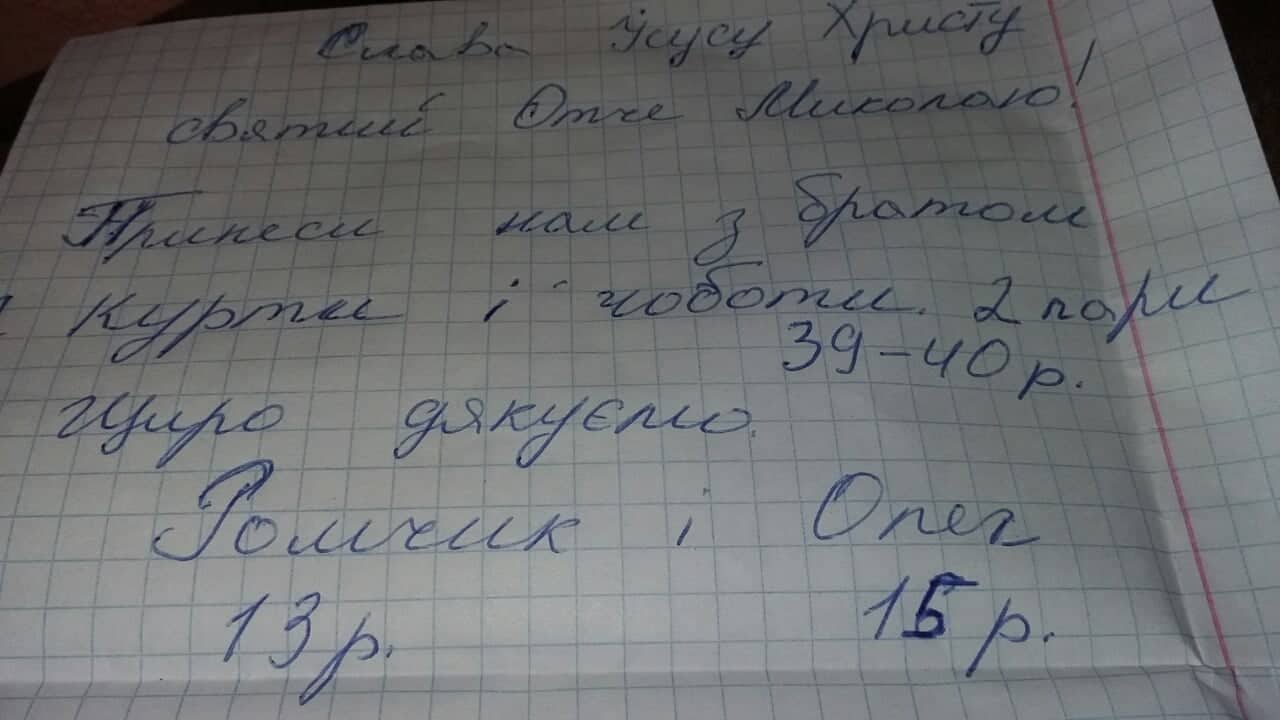 Слава Ісусу Христу
святий Отче Миколаю!
Принеси нам з братом
куртки і чоботи. 2 пари
39-40 р.
Щиро дякуємо.
Ромчик і Олег
13 р. 15 р.